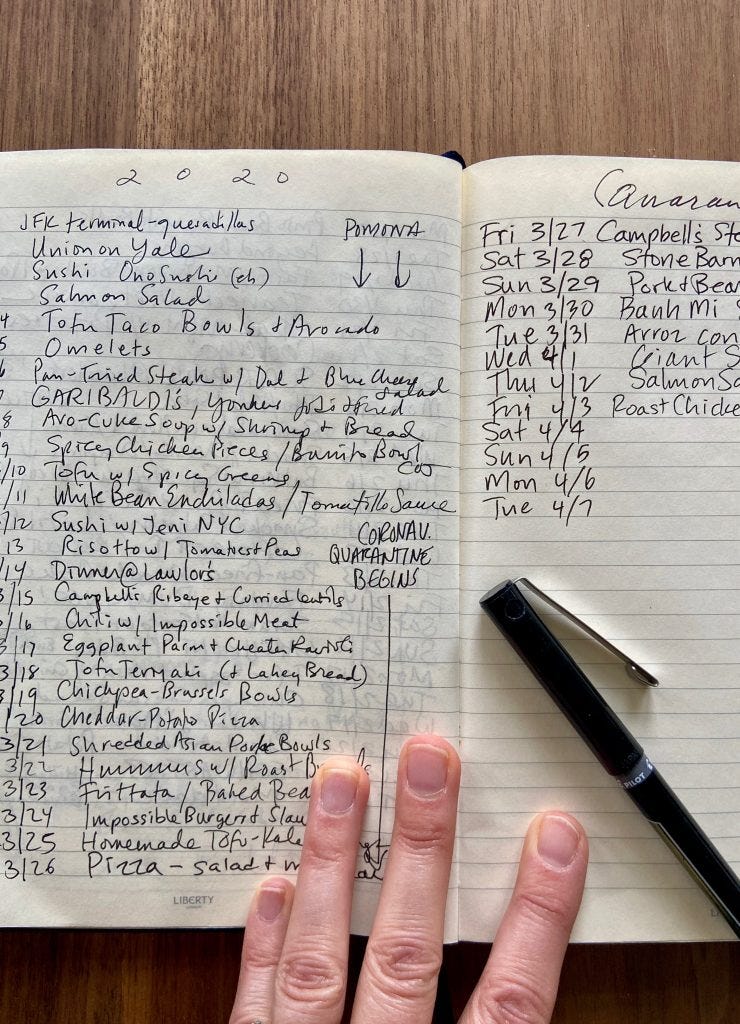 2020
JFK terminal-quesadillas
POMONA
Union on Yale
Sushi OnoSushi (eh)
Salmon Salad
4 Tofu Taco Bowls & Avocado
5 Omelets
6 Pan-Fried Steak w/ Dal & Blue Cheese Salad
7 GARIBALDI's, Yonkers
8 Avo-Cuke Soup w/ Shrimp & Bread
9 Spicy Chicken Pieces / Burrito Bowl
/10 Tofu w/ Spicy Greens
/11 White Bean Enchiladas / Tomatillo Sauce
/12 Sushi w/ Jeni NYC
13 Risotto w/ Tomatoes & Peas
/14 Dinner @ Lawlor's
CORONAV.
QUARANTINE
BEGINS
3/15 Campbell's Ribeye & Curried Lentils
/16 Chili w/ Impossible Meat
3/17 Eggplant Parm & Cheater Ravioli
3/18 Tofu Teriyaki (& Lahey Bread)
3/19 Chickpea-Brussels Bowls
/20 Cheddar-Potato Pizza
3/21 Shredded Asian Pork Bowls
3/22 Hummus w/ Roast
3/23 Frittata / Baked Bea
3/24 Impossible Burgers & Slaw
3/25 Homemade Tofu-Kale
3/26 Pizza - salad &
LIBERTY
Fri 3/27 Campbell's Ste
Sat 3/28 Stone Barn
Sun 3/29 Pork & Bea
Mon 3/30 Banh Mi
Tue 3/31 Arroz con
Wed 4/1 Giant S
Thu 4/2 Salmon Sa
Fri 4/3 Roast Chicke
Sat 4/4
Sun 4/5
Mon 4/6
Tue 4/7
PILOT